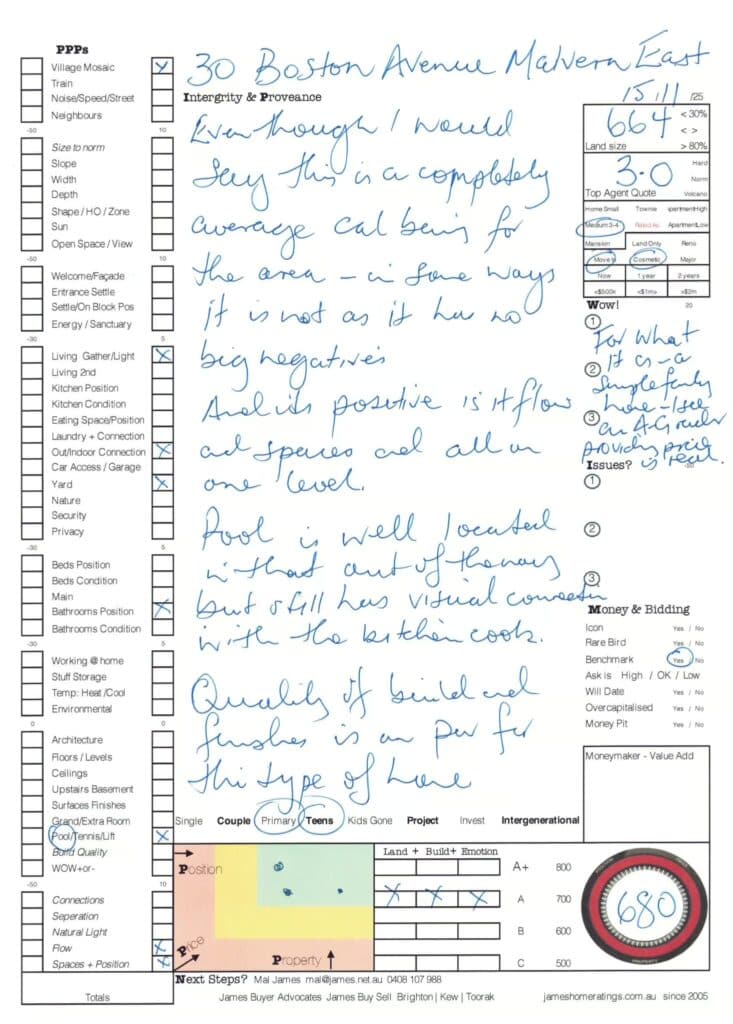 PPPs
30 Boston Avenue Malvern East
Village Mosaic
Train
Noise/Speed/Street
Neighbours
-50 10
Size to norm
Slope
Width
Depth
Shape / HO / Zone
Sun
Open Space / View
Welcome/Façade
Entrance Settle
Settle/On Block Pos
Energy / Sanctuary
-30 5
Living Gather/Light
Living 2nd
Kitchen Position
Kitchen Condition
Eating Space/Position
Laundry + Connection
Out/Indoor Connection
Car Access / Garage
Yard
Nature
Security
Privacy
-30 5
Beds Position
Beds Condition
Main
Bathrooms Position
Bathrooms Condition
-30 5
Working @ home
Stuff Storage
Temp: Heat /Cool
Environmental
0 0
Architecture
Floors / Levels
Ceilings
Upstairs Basement
Surfaces Finishes
Grand/Extra Room
Pool/Tennis/Lift
Build Quality
WOW+or-
-50 10
Connections
Seperation
Natural Light
Flow
Spaces + Position
Totals
Intergrity & Proveance
Even though I would
say this is a completely
average
the area - in some ways
it is not as it has no
big negatives
And its positive is it flow
and spaces and all on
one level.
Pool is well located
in that out of the way
but still has visual connection
with the kitchen cook.
Quality of build and
finishes is on par for
this type of home
15/11 /25
664 < 30%
< >
Land size > 80%
3.0 Hard
Norm
Top Agent Quote Volcano
Home Small Townie ApartmentHigh
Medium 3-4 Rated As ApartmentLow
Mansion Land Only Reno
Move in Cosmetic Major
Now 1 year 2 years
<$500k <$1m> <$2m
Wow! 20
1
2
3
For what
it is - a
simple family
home - I see
an A Grader
providing price
is real.
Issues? -50
1
2
3
Money & Bidding
Icon Yes / No
Rare Bird Yes / No
Benchmark Yes / No
Ask is High / OK / Low
Will Date Yes / No
Overcapitalised Yes / No
Money Pit Yes / No
Moneymaker - Value Add
Single Couple Primary Teens Kids Gone Project Invest Intergenerational
Position
Price
Property
Land + Build+ Emotion
A+ 800
A 700
B 600
C 500
X X X
680
Next Steps? Mal James mal@james.net.au 0408 107 988
James Buyer Advocates James Buy Sell Brighton | Kew | Toorak jameshomeratings.com.au since 2005